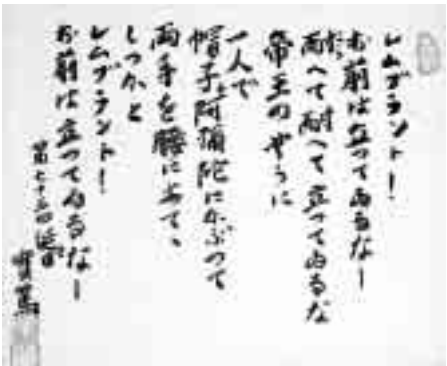 レムブラント！
お前は立つてゐるなー
耐へて耐へて立つてゐるな
帝王のやうに
一人で
帽子を阿彌陀にかぶつて
両手を腰にあてゝ
しつかと
レムブラント！
お前は立つてゐるなー
實篤